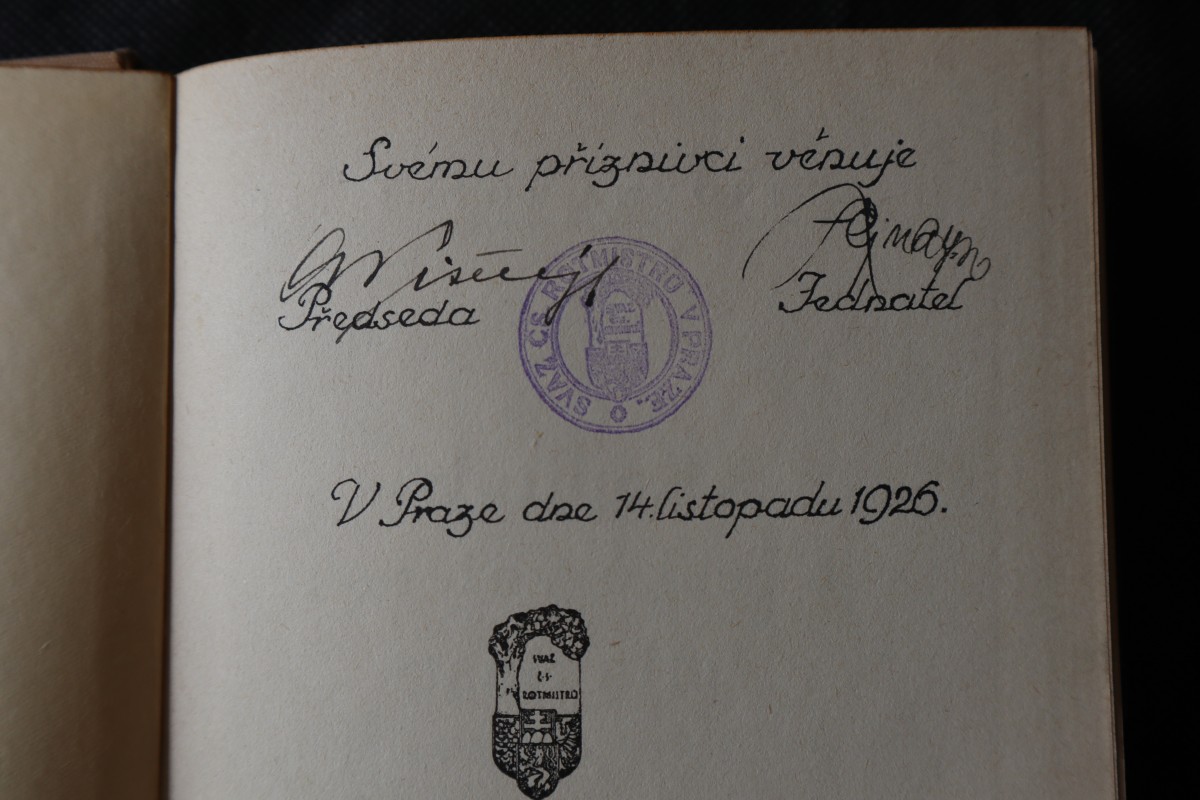 Svému příznivci věnuje
Předseda
Jednatel
SVAZ ČS. ROTMISTRŮ V PRAZE.
V Praze dne 14. listopadu 1926.
SVAZ
Č.S.
ROTMISTRŮ